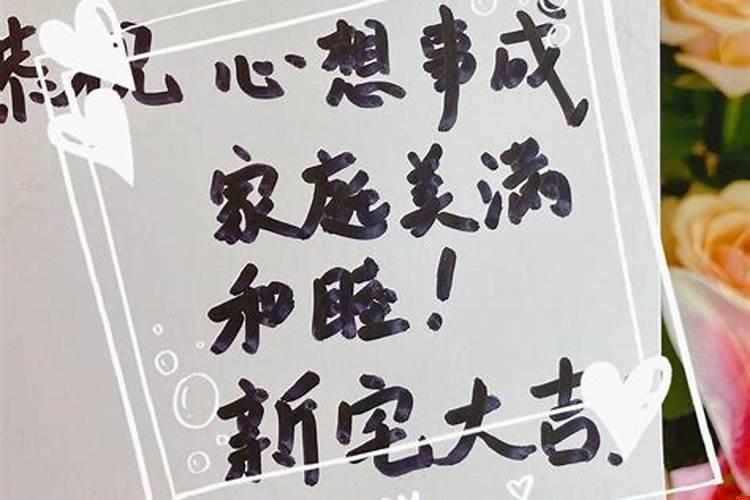 恭祝 心想事成
家庭美满
和睦!
新宅大吉.